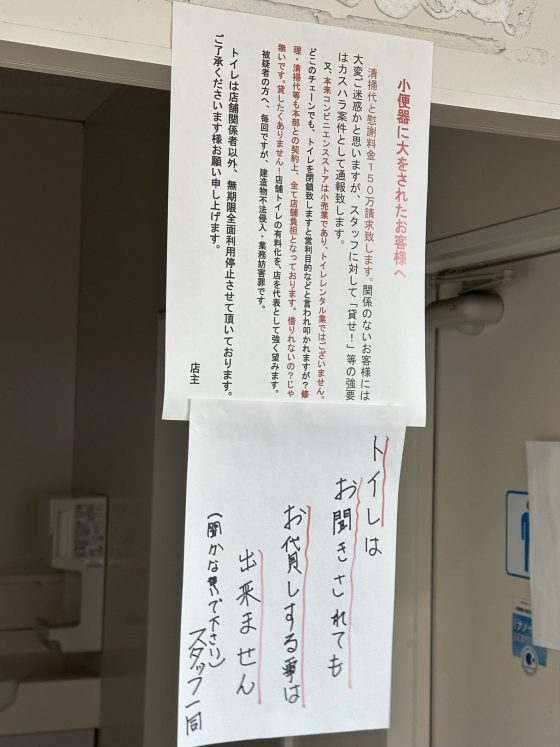 小便器に大をされたお客様へ
清掃代と慰謝料金150万請求致します。関係のないお客様には
大変ご迷惑かと思いますが、スタッフに対して「貸せ！」等の強要
はカスハラ案件として通報致します。
又、本来コンビニエンスストアは小売業であり、トイレレンタル業ではございません。
どこのチェーンでも、トイレを閉鎖致しますと営利目的などと言われ叩かれますが？修
理・清掃代等も本部との契約上、全て店舗負担となっております。借りれないの？じゃ
無いです。貸したくありません！店舗トイレの有料化を、店を代表として強く望みます。
被疑者の方へ、毎回ですが、建造物不法侵入・業務妨害罪です。
トイレは店舗関係者以外、無期限全面利用停止させて頂いております。
ご了承くださいます様お願い申し上げます。
店主
トイレは
お聞きされても
お貸しする事は
出来ません
(聞かないで下さい)
スタッフ一同